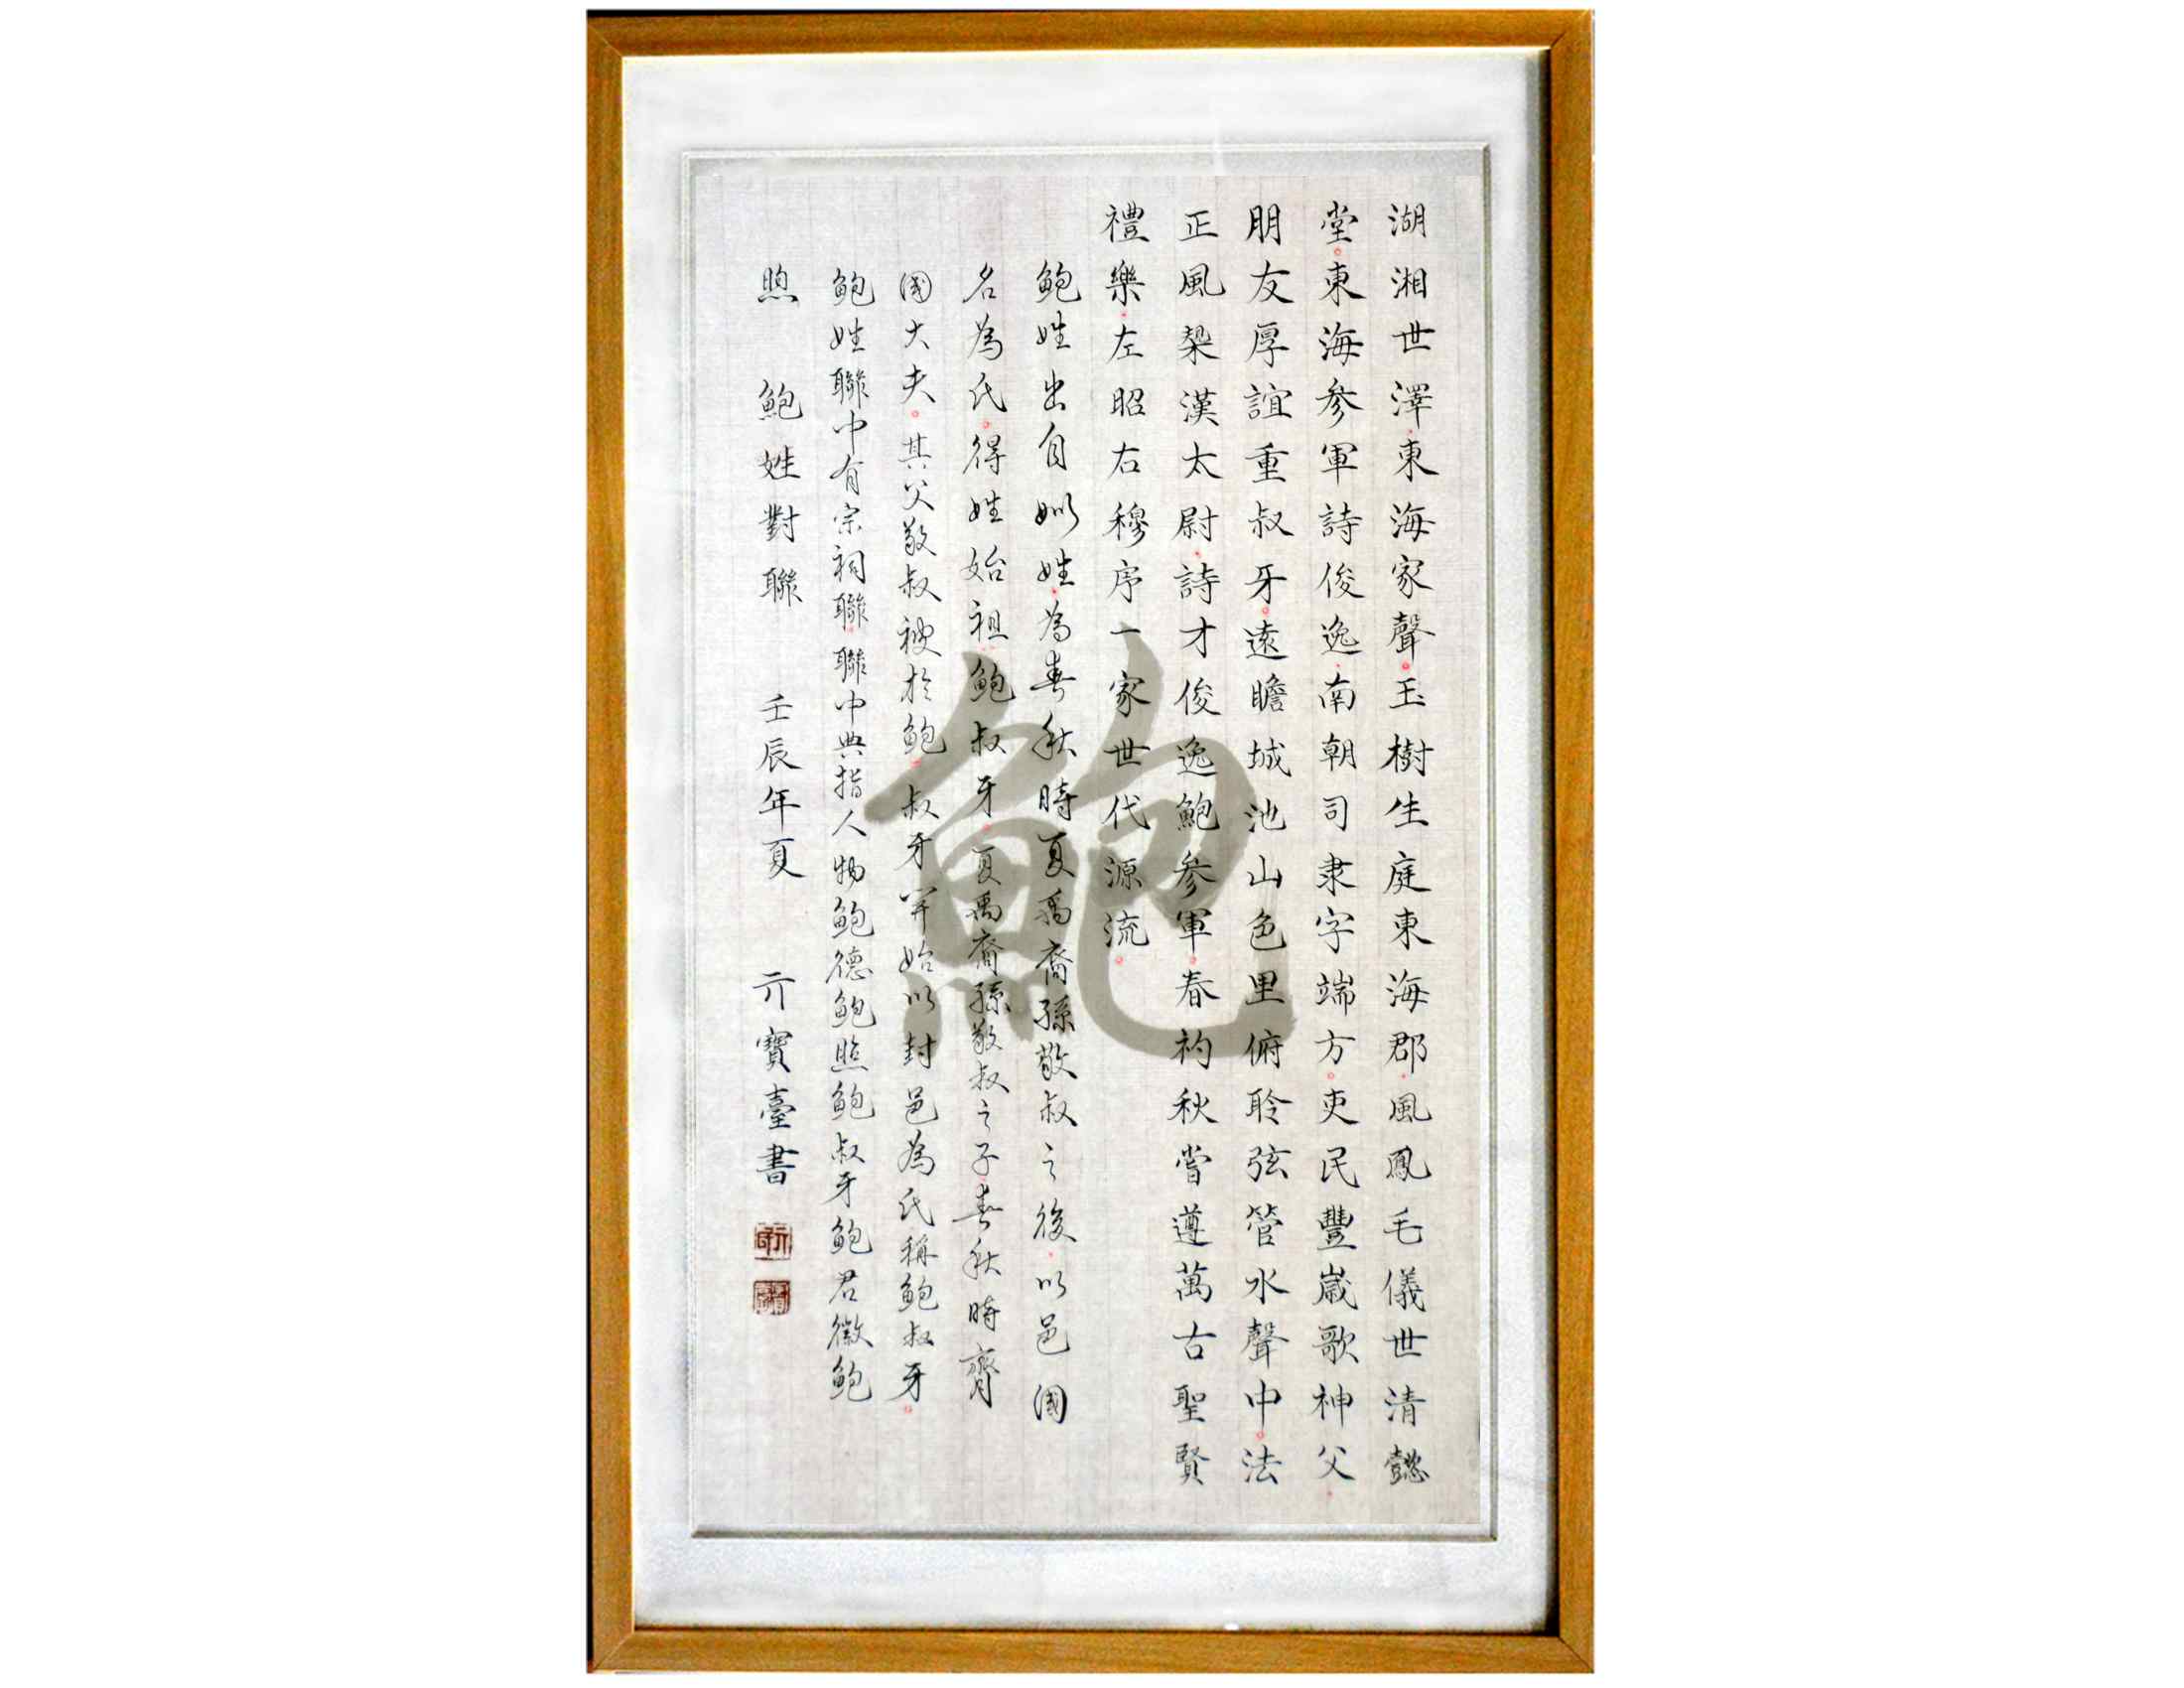 湖湘世澤東海家聲。玉樹生庭東海郡風鳳毛儀世清懿
堂。東海參軍詩俊逸南朝司隶字端方。吏民豐歲歌神父
朋友厚誼重叔牙。遠瞻城池山色里俯聆弦管水聲中。法
正風槼漢太尉詩才俊逸鮑參軍。春礿秋嘗遵萬古聖賢
禮樂左昭右穆序一家世代源流。
鮑姓出自姒姓為春秋時夏禹裔孫敬叔之後以邑國
名為氏。得姓始祖鮑叔牙。夏禹裔孫敬叔之子春秋時齊
國大夫。其父敬叔被於鮑叔牙開始以封邑為氏稱鮑叔牙。
鮑姓聯中有宗祠聯聯中典指人物鮑德鮑照鮑叔牙鮑君徽鮑
煦 鮑姓對聯 壬辰年夏 亓寶臺書
鮑